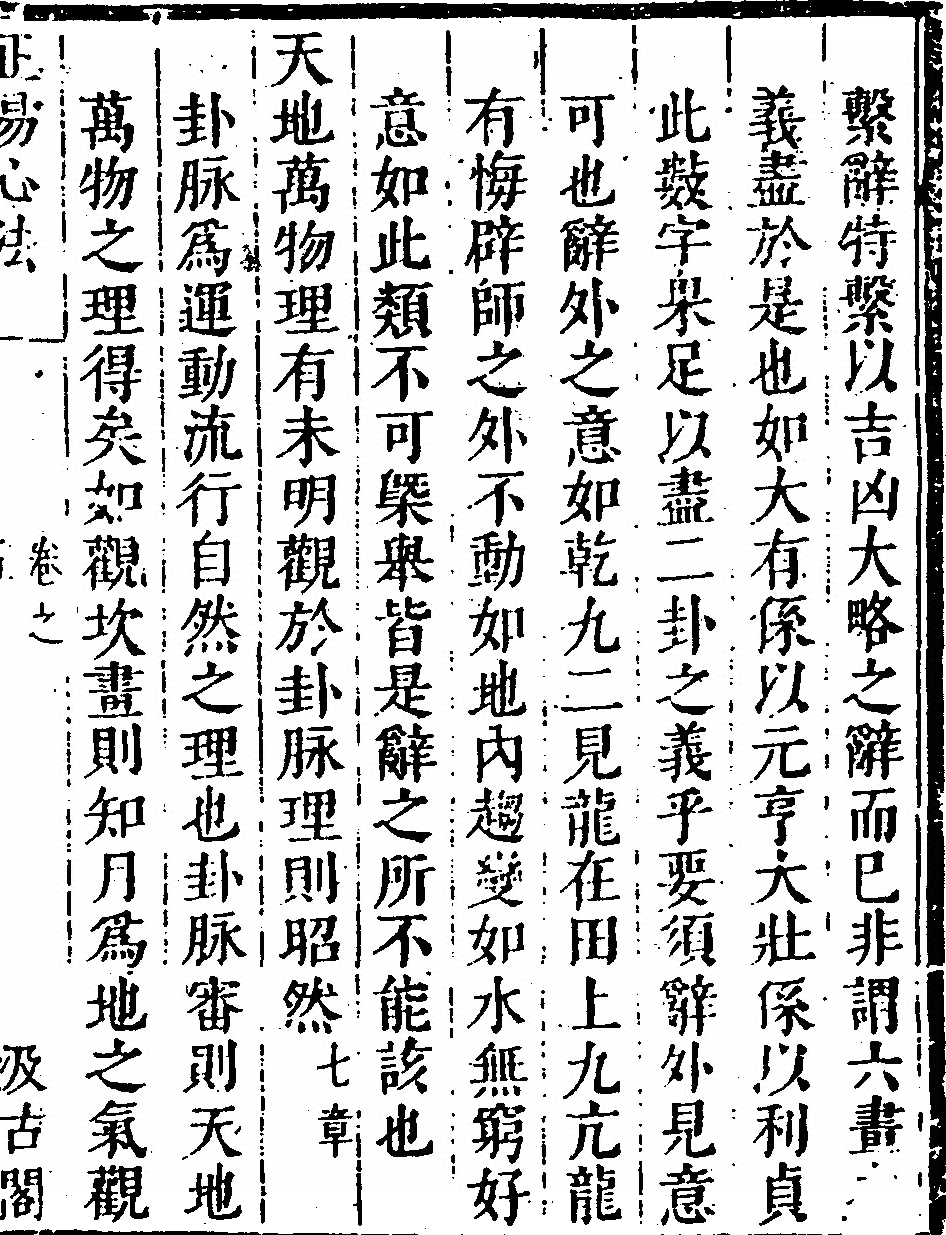 繫辭特繫以吉凶大略之辭而已非謂六畫
義盡於是也如大有係以元亨大壯係以利貞
此數字果足以盡二卦之義乎要須辭外見意
可也辭外之意如乾九二見龍在田上九亢龍
有悔辟師之外不動如地內趨變如水無窮好
意如此類不可槩舉皆是辭之所不能該也
天地萬物理有未明觀於卦脉理則昭然 七章
卦脉爲運動流行自然之理也卦脉審則天地
萬物之理得矣如觀坎畫則知月爲地之氣觀
正易心法 卷之 汲古閣